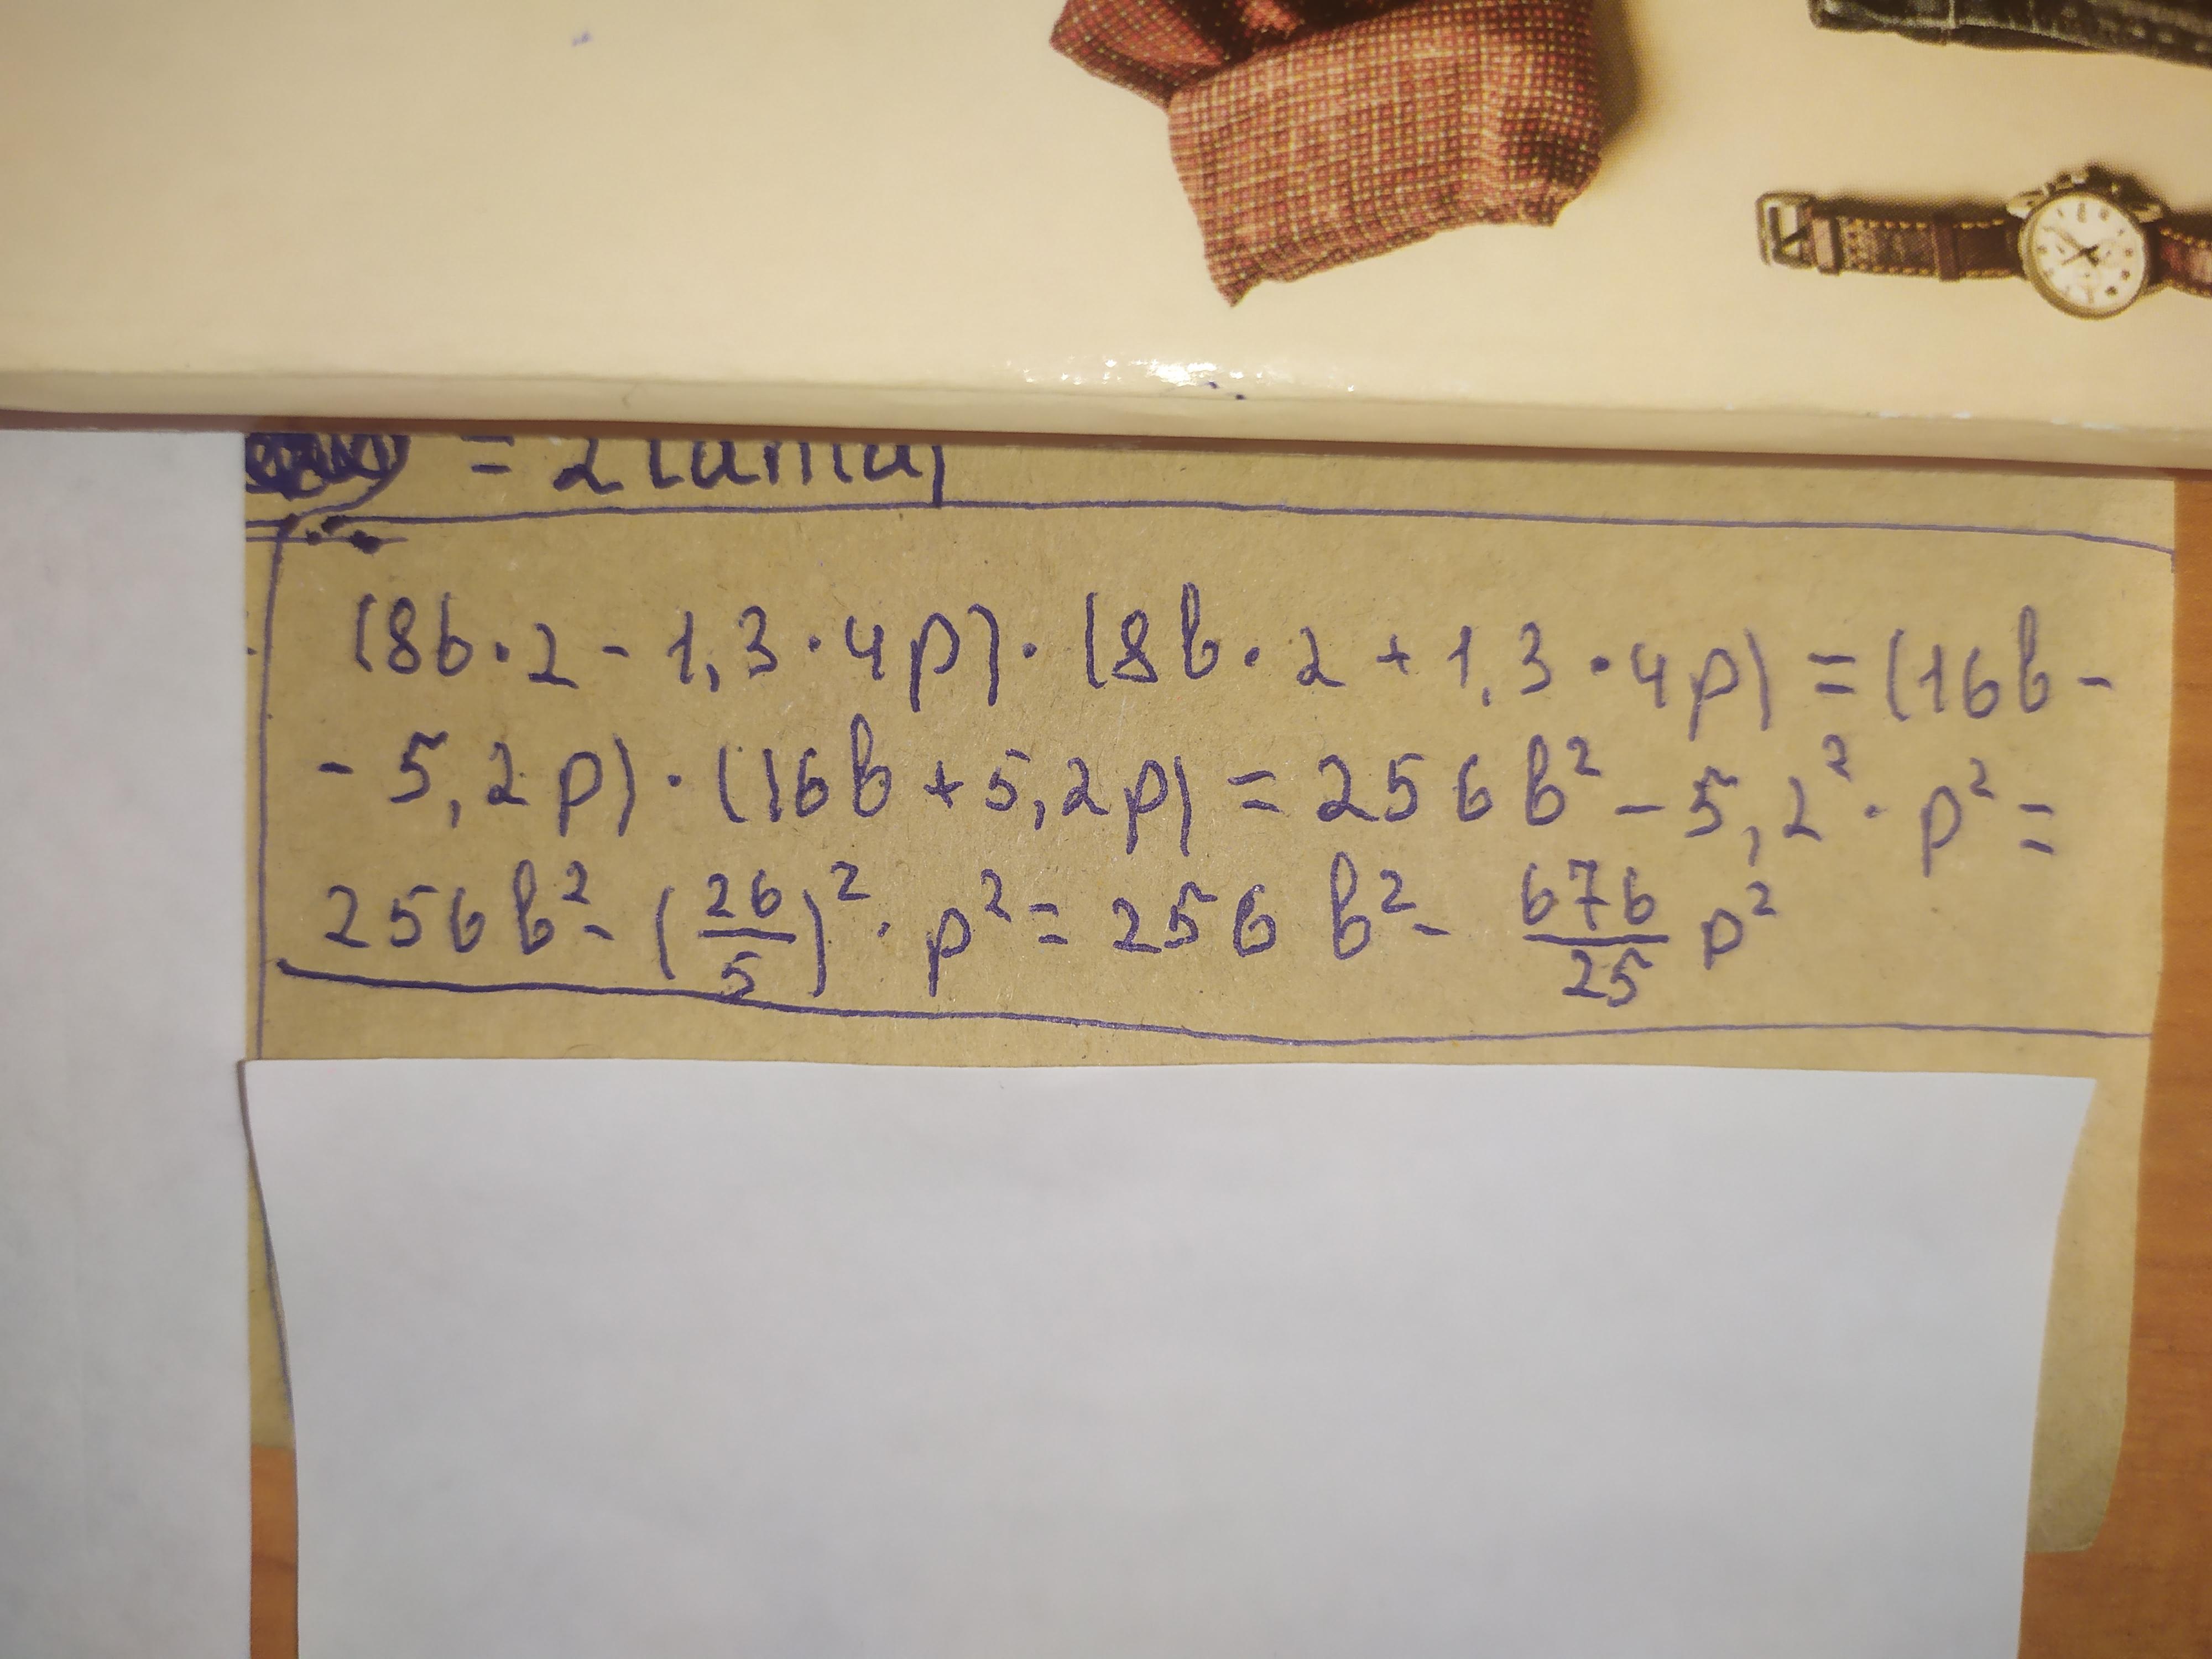 = 2
(8b·2 - 1,3·4p)·(8b·2 + 1,3·4p) = (16b -
- 5,2p)·(16b + 5,2p) = 256b² - 5,2²·p² =
256b² - (26/5)²·p² = 256b² - 676/25 p²